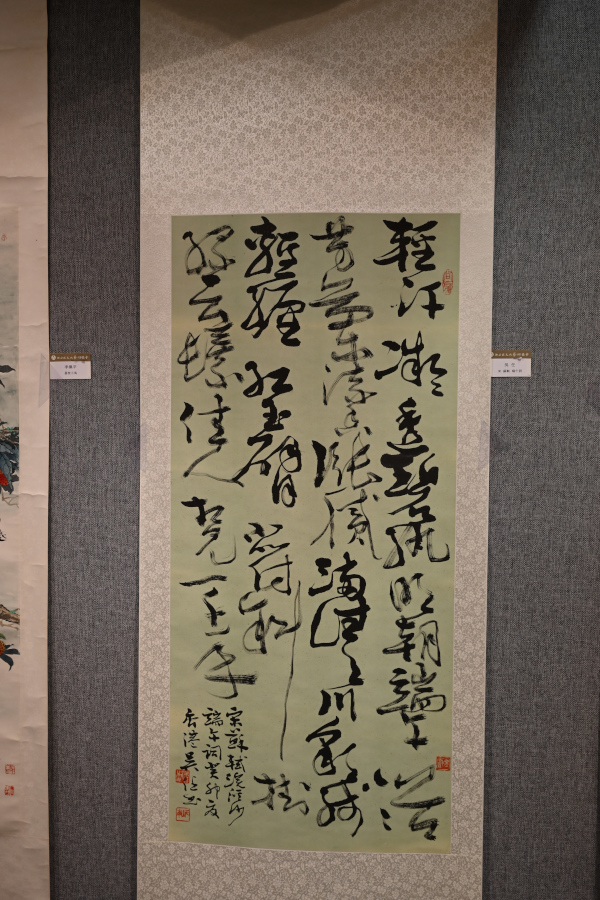 輕汗微微透碧紈明朝端午浴
芳蘭流香漲膩滿晴川彩綫
輕纏紅玉臂小符斜掛
綠云鬟佳人相見一千年
宋蘇軾浣溪沙
端午詞癸卯夏
香港吳